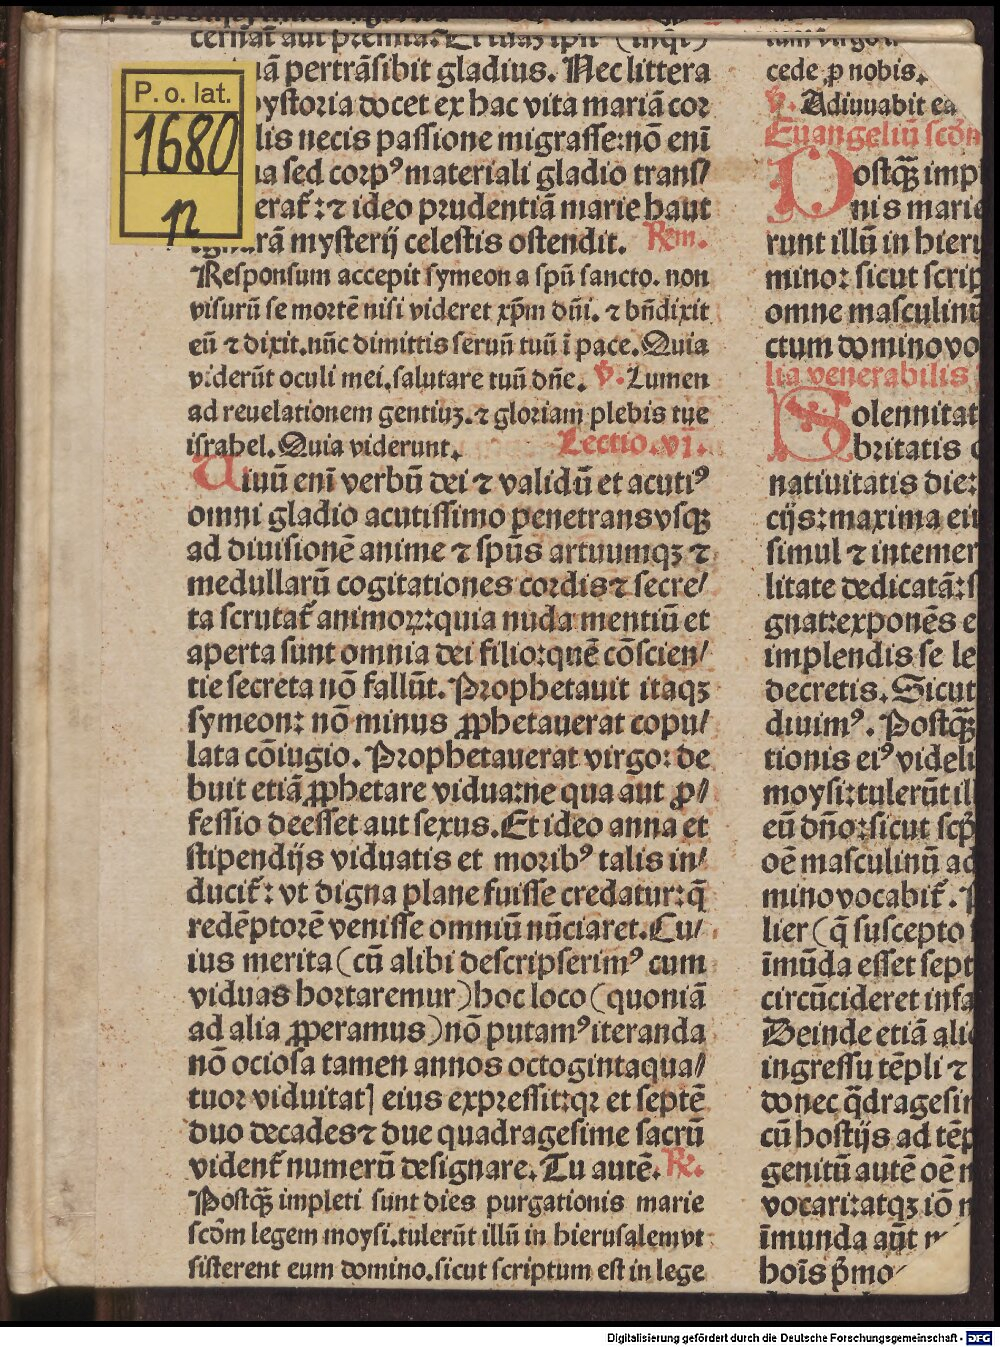 P. o. lat.
1680
n
cernat aut premita. Et tuaʒ ipīꝰ (inqͥt)
uā pertrāſibit gladius. Nec littera
yſtoria docet ex hac vita mariā cor
lis necis paſſione migraſſe: nō enī
a sed corpꝰ materiali gladio tranſ/
erat᷑: ⁊ ideo prudentiā marie haut
ignarā myſterij celeſtis oſtendit. Rꝫm.
Reſponſum accepit ſymeon a ſpū ſancto. non
viſurū ſe mortē niſi videret xp̄m dn̄i. ⁊ bn̄dixit
eū ⁊ dixit. nūc dimittis ſeruū tuū ī pace. Quia
viderūt oculi mei. ſalutare tuū dn̄e. v̄. Lumen
ad reuelationem gentiuʒ. ⁊ gloriam plebis tue
iſrahel. Quia viderunt. Lectio. vj.
Uiuū enī verbū dei ⁊ validū et acutiꝰ
omni gladio acutiſſimo penetrans vſqꝫ
ad diuiſionē anime ⁊ ſpūs artuumqꝫ ⁊
medullarū cogitationes cordis ⁊ ſecre/
ta ſcrutat᷑ animoꝝ: quia nuda mentiū et
aperta ſunt omnia dei filio: quē cōſcien/
tie ſecreta nō fallūt. Prophetauit itaqꝫ
ſymeon: nō minus ꝓphetauerat copu/
lata cōiugio. Prophetauerat virgo: de
buit etiā ꝓphetare vidua: ne qua aut ꝓ/
feſſio deeſſet aut ſexus. Et ideo anna et
ſtipendijs viduatis et moribꝰ talis in/
ducit᷑: vt digna plane fuiſſe credatur: q̄
redēptorē veniſſe omniū nūciaret. Cu/
ius merita (cū alibi deſcripſerimꝰ cum
viduas hortaremur) hoc loco (quoniā
ad alia ꝓperamus) nō putamꝰ iteranda
nō ocioſa tamen annos octogintaqua/
tuor viduitatꝭ eius expreſſit: qꝛ et ſeptē
duo decades ⁊ due quadrageſime ſacrū
vident᷑ numerū deſignare. Tu autē. R̄.
Poſtqꝫ impleti ſunt dies purgationis marie
ſcd̄m legem moyſi. tulerūt illū in hieruſalem vt
ſiſterent eum domino. ſicut ſcriptum eſt in lege
cede ꝓ nobis.
v̄. Adiuuabit ea
Euangeliū ſcd̄m
Poſtqꝫ imp
nis marie
runt illū in hieru
mino: ſicut ſcrip
omne maſculinū
ctum domino vo
lia venerabilis
Solennitat
britatis
natiuitatis die:
cijs: maxima eiu
ſimul ⁊ intemer
litate dedicatā: ſ
gnat: exponēs e
implendis ſe le
decretis. Sicut
diuimꝰ. Poſtqꝫ
tionis eiꝰ videli
moyſi: tulerūt il
eū dn̄o: ſicut ſcp̄
oē maſculinū ad
mino vocabit᷑.
lier (q̄ ſuſcepto
īmūda eſſet ſept
circūcideret infa
Deinde etiā alio
ingreſſu tēpli ⁊
donec q̄drageſim
cū hoſtijs ad tēp
genitū autē oē m
vocari: atqꝫ iō n
īmunda aūt
hoīs p̄mo
Digitalisierung gefördert durch die Deutsche Forschungsgemeinschaft - DFG